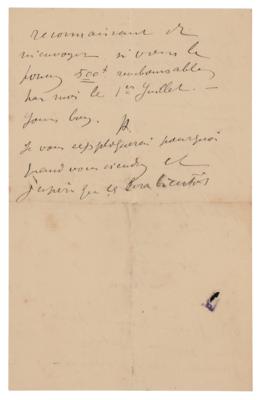 reconnaissant de
m'envoyer si vous le
pouvez 500f remboursables
par moi le 1er Juillet. —
Yours
Je vous expliquerai pourquoi
quand vous viendrez et
j'espère que ce sera bientôt